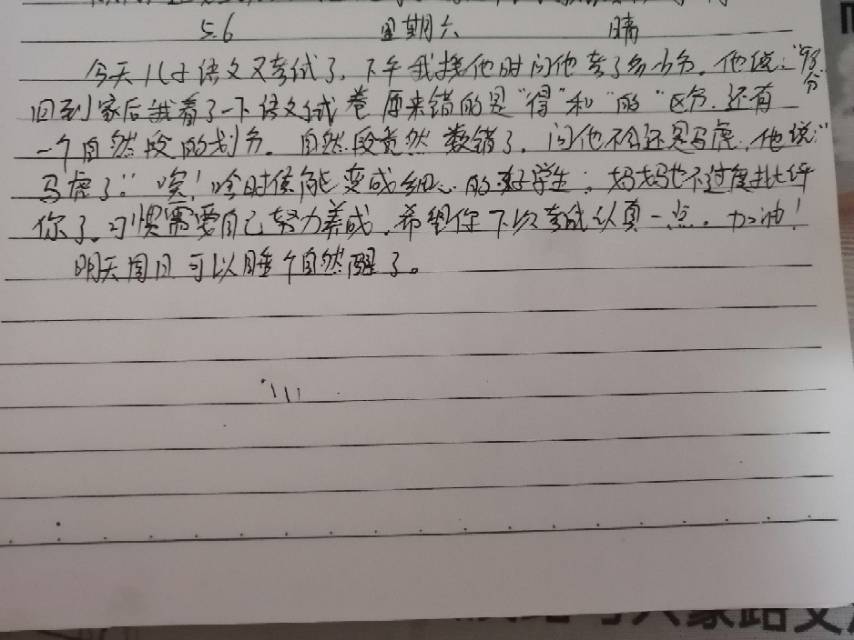 5.6 星期六 晴
今天儿子语文又考试了,下午我接他时问他考了多少分。他说:"93分
回到家后我看了一下语文试卷原来错的是"得"和"的"区分.还有
一个自然段的划分。自然段竟然数错了.问他不会还是马虎,他说:"
马虎了!"唉!啥时侯能变成细心的好学生,妈妈也不过度批评
你了。习惯需要自己努力养成,希望你下次考试认真一点。加油!
明天周日可以睡个自然醒了。